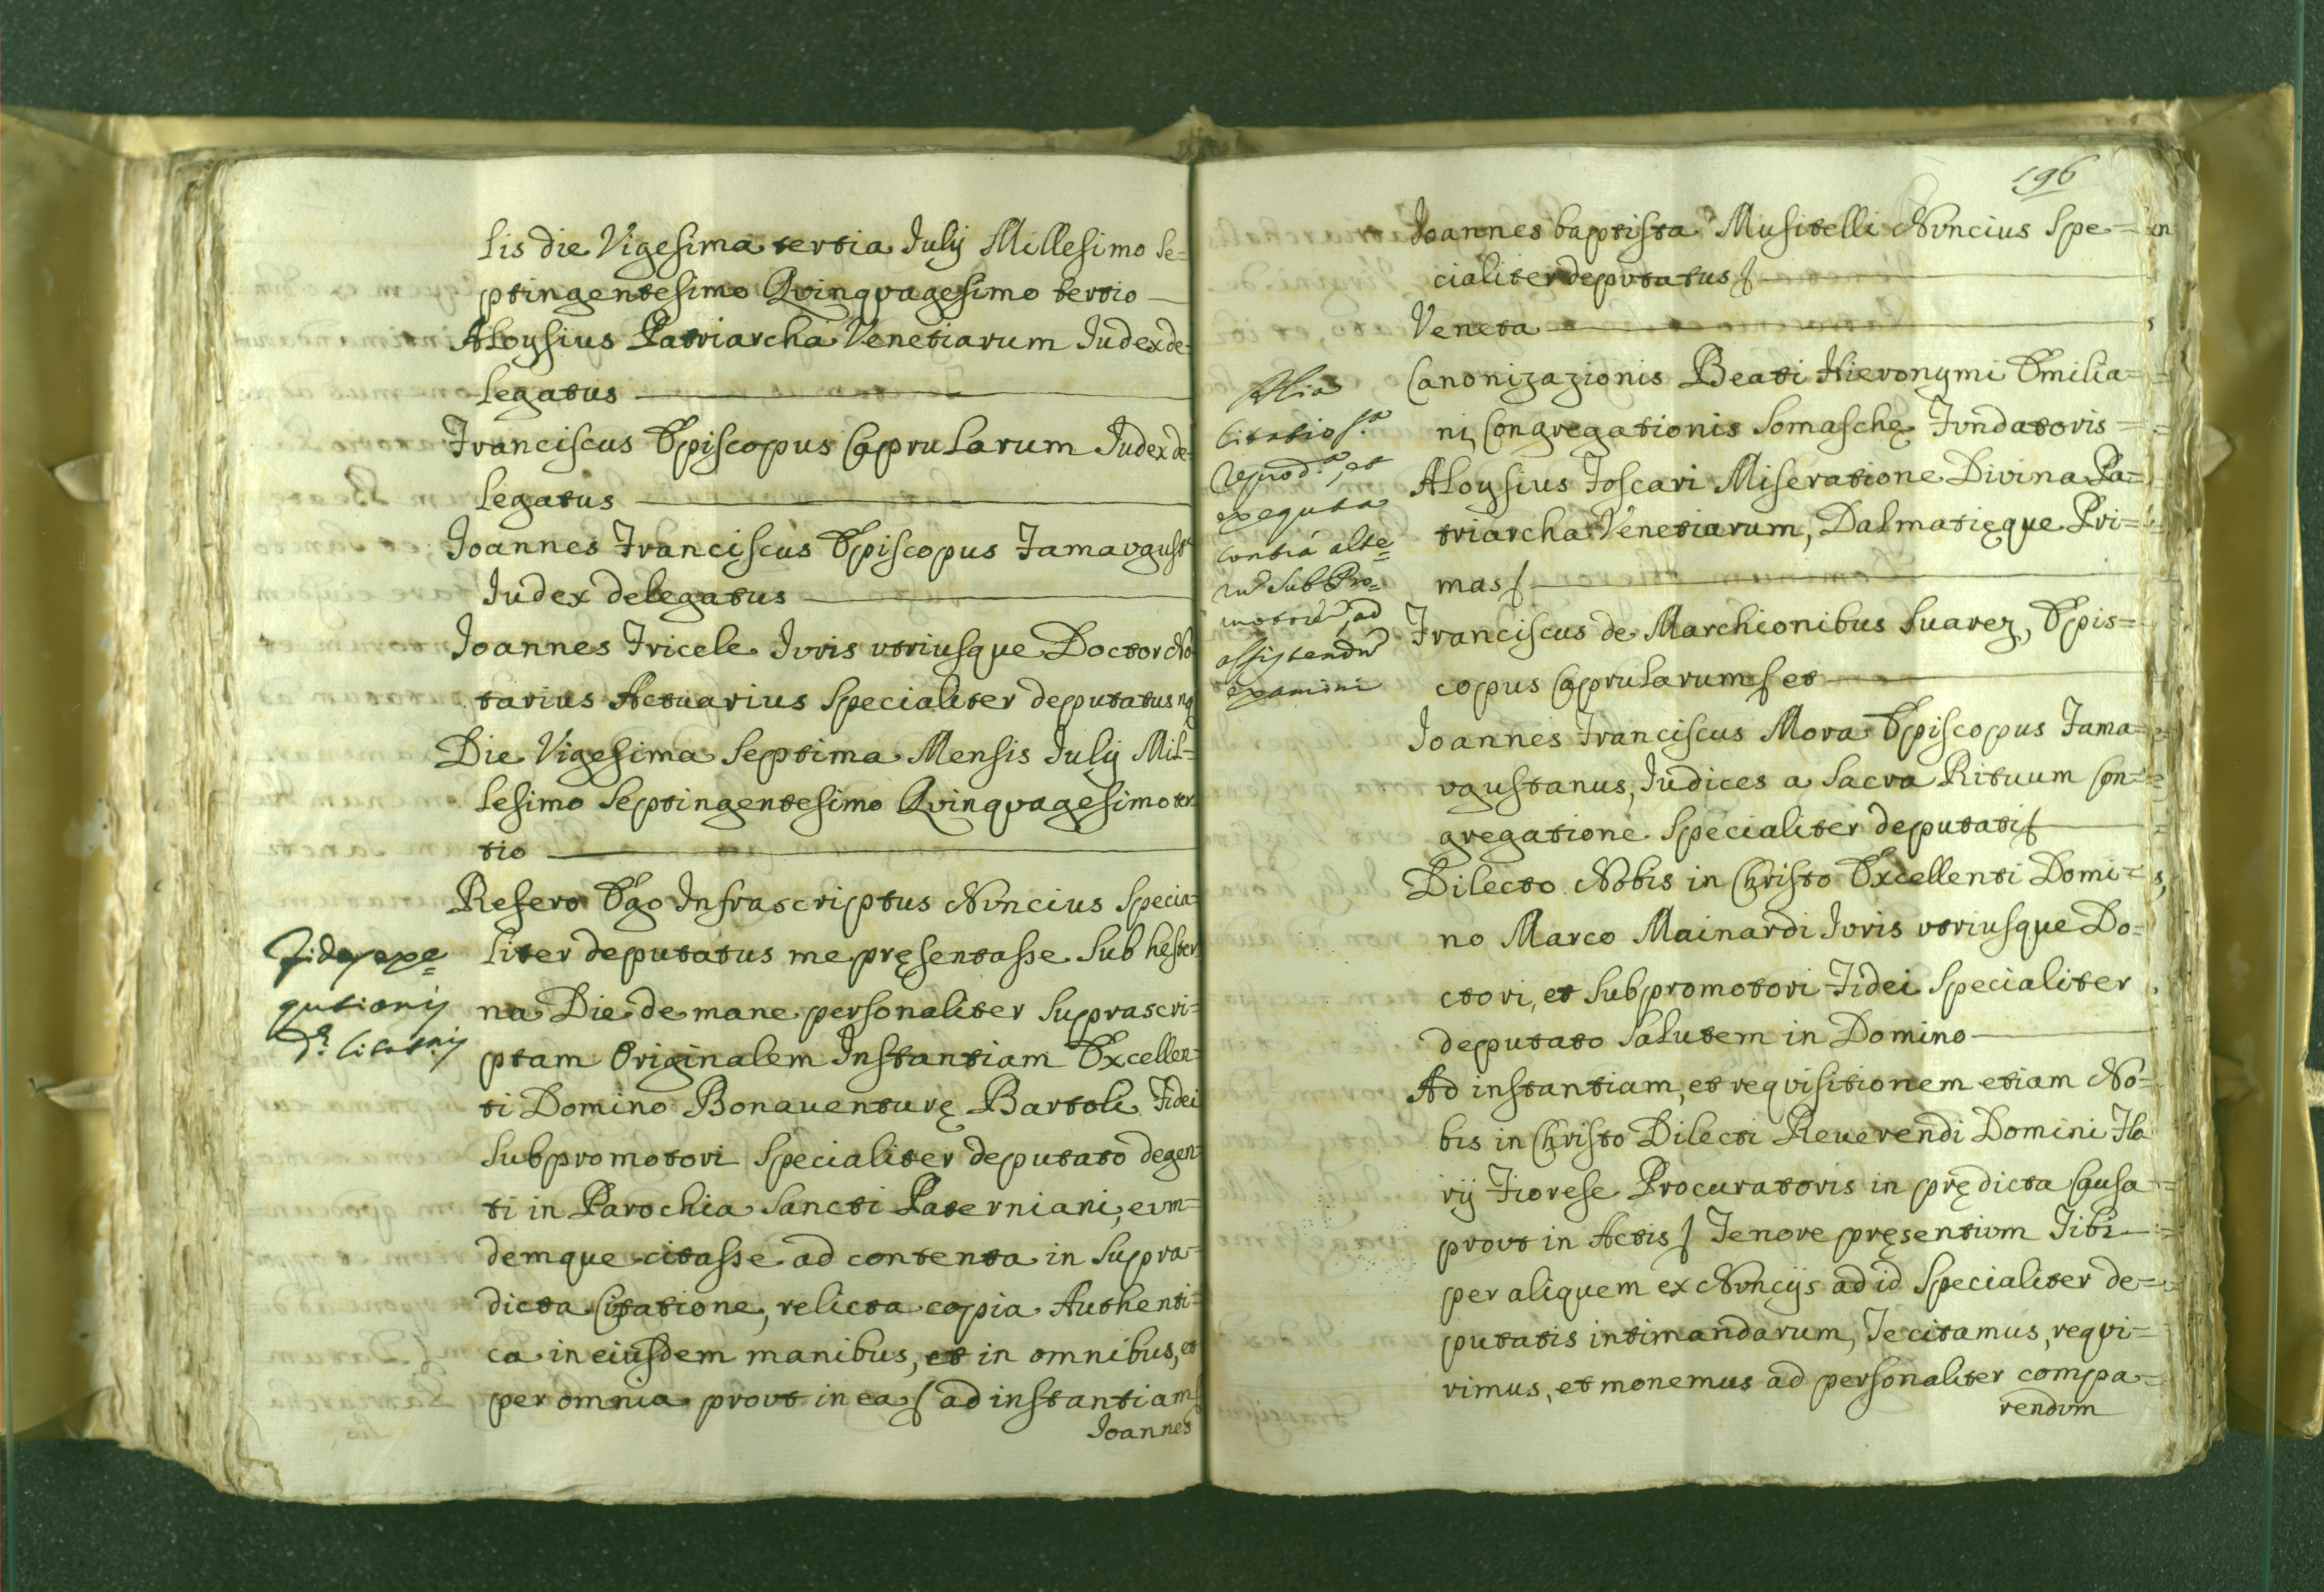 lis die Vigesima tertia Julij Millesimo Se=
ptingentesimo Qvinqvagesimo tertio
Aloysius Patriarcha Venetiarum Judex de=
legatus
Franciscus Episcopus Caprularum Judex de=
legatus
Joannes Franciscus Episcopus Famavgust
Judex delegatus
Joannes Fricele Jvris vtriusque Doctor No
tarius Actuarius Specialiter deputatus
Die Vigesima Septima Mensis Julij Mil=
lesimo Septingentesimo Qvinqvagesimo ter
tio
Refero Ego Infrascriptus Nvncius Specia=
liter deputatus me pręsentasse sub hester
na Die de mane personaliter Suprascri=
ptam Originalem Instantiam Excellen=
ti Domino Bonauenturę Bartoli Fidei
Subpromotori Specialiter deputato degen
ti in Parochia Sancti Paterniani, evm=
demque citasse ad contenta in Supra=
dicta Citatione, relicta copia Authenti=
ca in eiusdem manibus, et in omnibus, et
per omnia provt in ea ad instantiam
Joannes
Fides exe=
qutionis
Citatnis
196
Joannes baptista Musitelli Nvncius Spe=
cialiter depvtatus
Veneta
Canonizazionis Beati Hieronymi Emilia=
ni Congregationis Somaschę Fvndatoris
Aloysius Foscari Miseratione Divina Pa=
triarcha Venetiarum, Dalmatięque Pri=
mas
Franciscus de Marchionibus Suarez, Epis=
copus Caprularum et
Joannes Franciscus Mora Episcopus Fama=
vgustanus, Judices a Sacra Rituum Con=
gregatione Specialiter deputati
Dilecto Nobis in Christo Excellenti Domi=
no Marco Mainardi Jvris vtriusque Do=
ctori, et Subpromotori Fidei Specialiter
deputato Salutem in Domino
Ad instantiam, et reqvisitionem etiam No=
bis in Christo Dilecti Reuerendi Domini Ila
rij Fiorese Procuratoris in prędicta Causa
provt in Actis Tenore pręsentivm Tibi
per aliquem ex Nvncijs ad id Specialiter de=
putatis intimandarum, Te citamus, reqvi=
rimus, et monemus ad personaliter compa=
rendvm
Alia
Citatio
reprod.a, et
exequta
contra alte=
rū Sub Pro=
motorē, ad
assistendū
examini